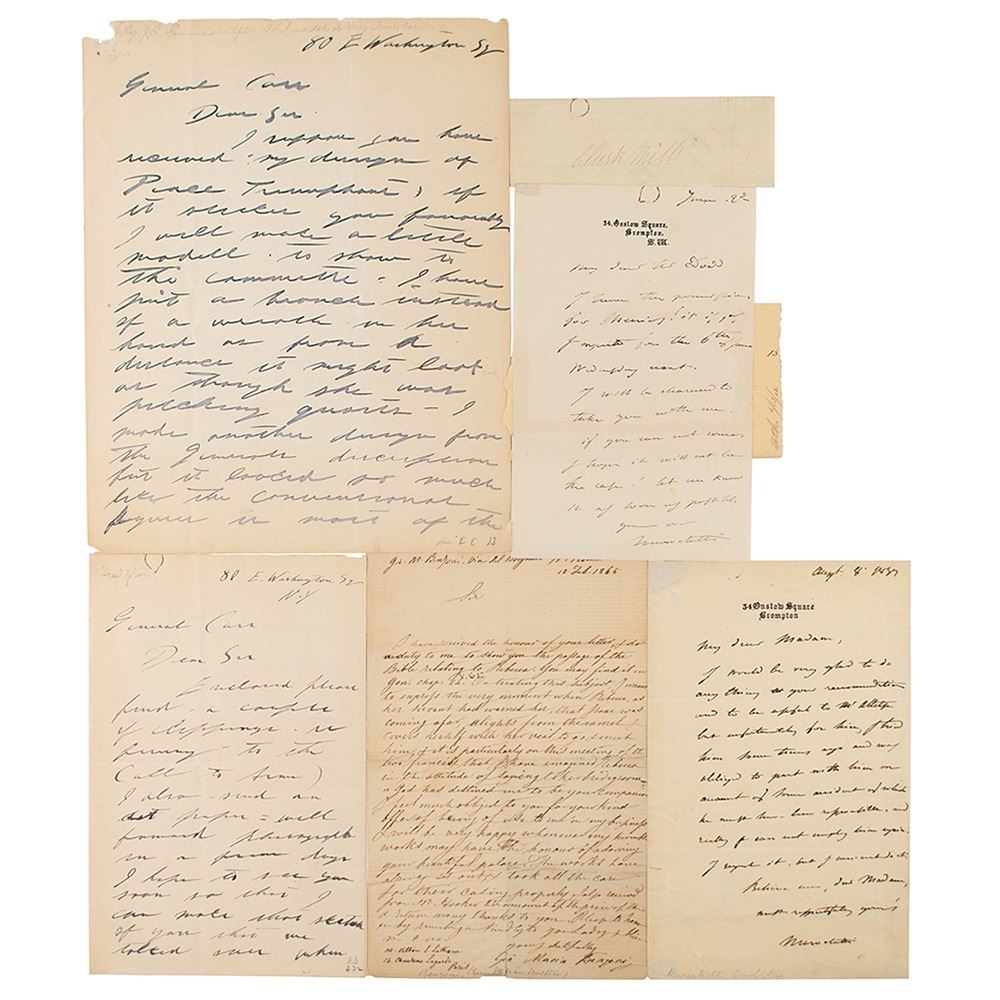 80 E Washington Sq
General Carr
Dear Sir
I suppose you have
received my design of
Peace Triumphant, if
it strikes you favorably
I will make a little
modell to show to
the committe - I have
put a branch instead
of a wreath in her
hand as from a
distance it might look
as though she was
pitching quoits - I
made another design from
the Generals discription
but it looked so much
like the conventional
figures in most of the
E E 13
Clark Mills
June 2
34, Onslow Square,
Brompton.
S. W.
My dear Mr Dodd
I have the permission
for
I for the 6th June
Wednesday next.
I will be charmed to
take you with me.
if you can not come,
I hope it will not be
the case! let me know
it as soon as possible
Marochetti
13
Sculptor
80 E. Washington Sq
N.Y
General Carr
Dear Sir
Enclosed please
find a couple
of clippings re
ferring to the
(Call to Arms)
I also send an
art paper - will
forward photograph
in a few days
I hope to see you
soon so that I
can make that sketch
of you that we
talked over when
12 Feb. 1865
Sir
I have received the honour of your letter, I do
a duty to me to show you the passage of the
Bible relating to Rebecca. You may find it in
Gen. chap. 24. In treating this subject I mean
to express the very moment when Rebecca, as
her servant had warned her, that Isaac was
coming afar, alights from the camel &
covers herself with her veil to meet
him; & it is particularly on this meeting of the
two fiancées that I have imagined Rebecca
in the attitude of saying to the bridegroom
God has destined me to be your companion
I feel much obliged to you for your kind
offer of being of use to me in my
I will be very happy whenever my humble
works may have the honour of adorning
your beautiful palace. The works have
already set out & I took all the care
for their casing properly. I also received
from Mr. Hooker the amount of the price of them
& return many thanks to you.
by to your Lady &
yours dutifully
Gio Maria Benzoni
Paris
Benzoni
Augt 8
34 Onslow Square
Brompton
My dear Madam,
I would be very glad to do
any thing at your recommendation
and to be useful to Mr
but unfortunately for him I had
him some times ago and was
obliged to part with him on
account of some accident of which
he must have been reprehensible, and
really I can not employ him again.
I regret it, but I can not do it.
Believe me, dear Madam,
most respectfully yours
Marochetti